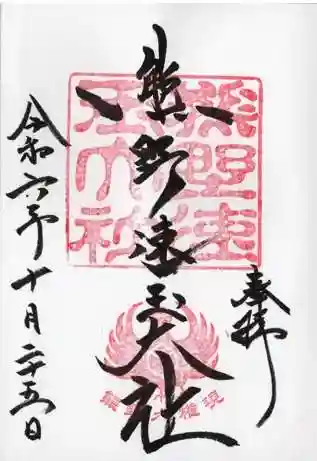 奉拝
熊野速玉大社
令和六年十月二十五日
熊野速玉大社